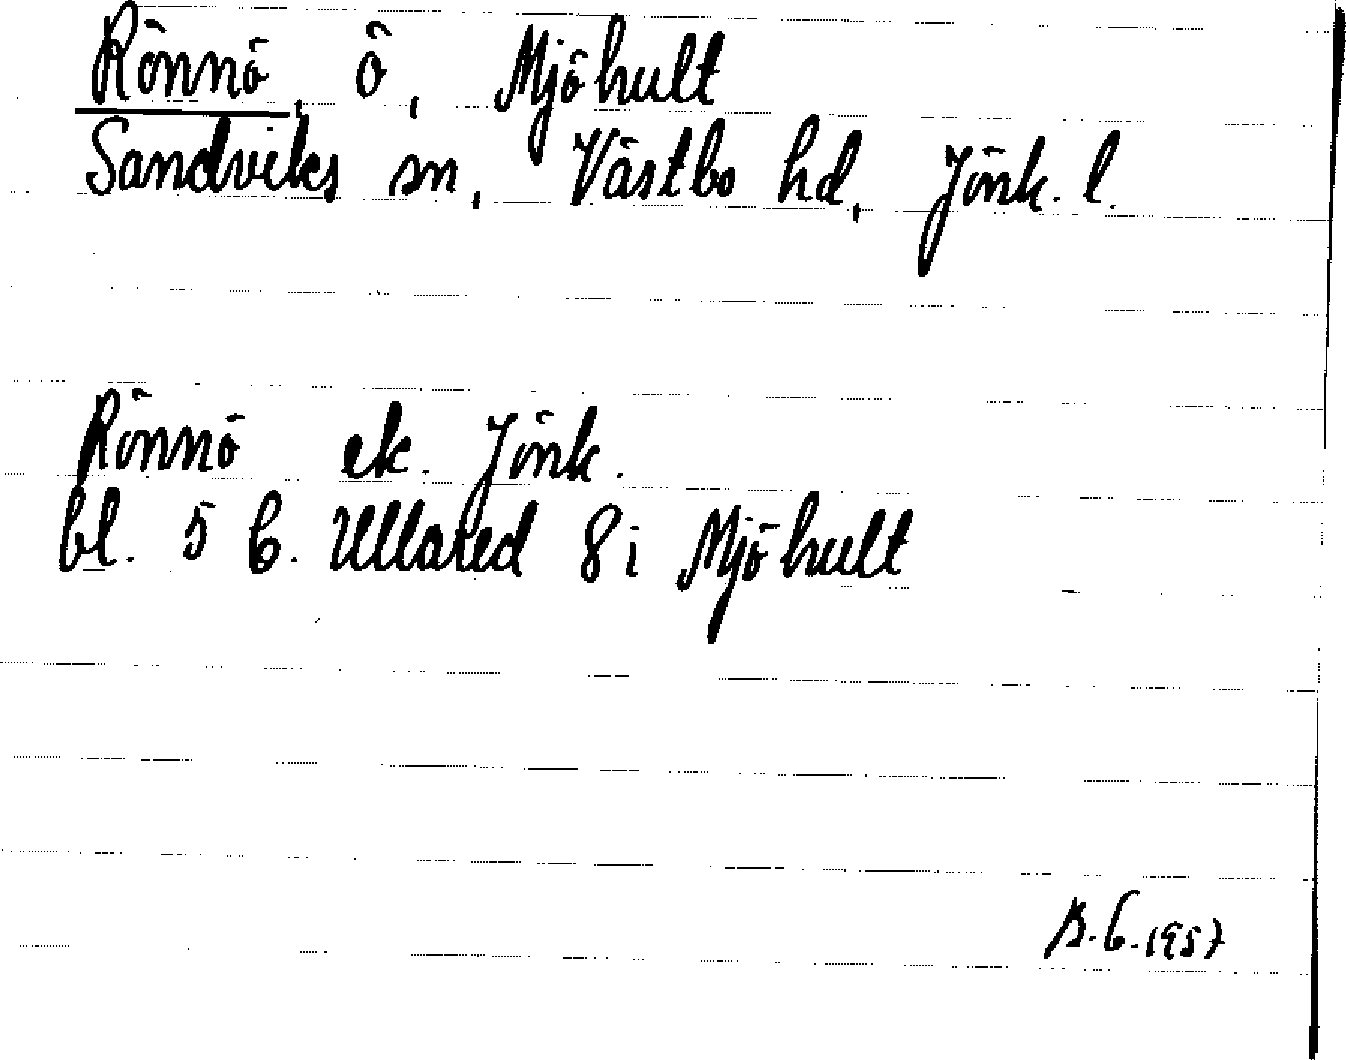 Rönnö, ö, Mjöhult
Sandviks sn, Västbo hd, Jönk. l.
Rönnö ek. Jönk.
bl. 5 6. Ullared 8i Mjöhult
B.G. 1957